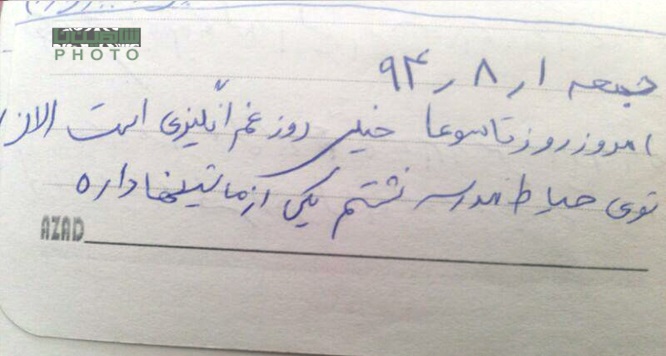 PHOTO
جمعه ۱ر۸ر۹۴
امروز روز تاسوعا خیلی روز غم انگیزی است الان
توی حیاط مدرسه نشستم یکی از ماشینها داره
AZAD